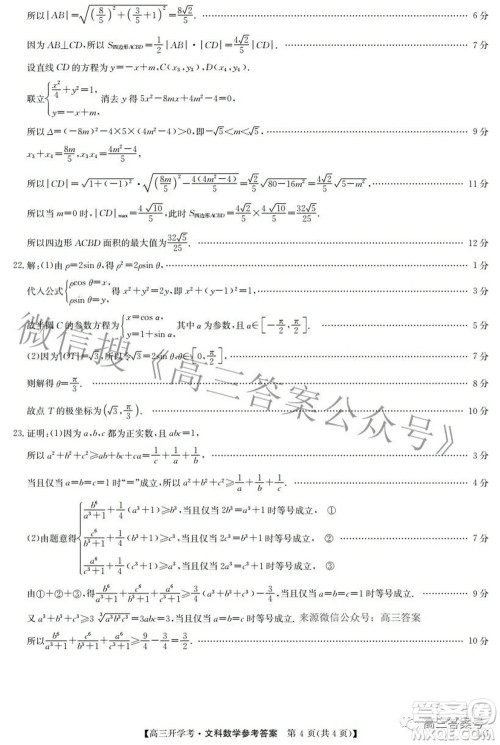 所以|AB|=√((8/5)²+(3/5+1)²)=8√2/5. 6分
因为AB⊥CD,所以S四边形ACBD=1/2|AB|·|CD|=4√2/5|CD|. 7分
设直线CD的方程为y=-x+m,C(x₃,y₃),D(x₄,y₄).
联立{x²/4+y²=1, y=-x+m, 消去y得5x²-8mx+4m²-4=0.
所以Δ=(-8m)²-4×5×(4m²-4)>0,即-√5<m<√5. 9分
x₃+x₄=8m/5,x₃x₄=(4m²-4)/5.
所以|CD|=√(1+(-1)²)·√((8m/5)²-4(4m²-4)/5)=√2/5√(80-16m²)=4√2/5√(5-m²). 11分
所以当m=0时,|CD|max=4√10/5,此时S四边形ACBD=4√2/5×4√10/5=32√5/25.
所以四边形ACBD面积的最大值为32√5/25. 12分
22.解:(1)由ρ=2sin θ,得ρ²=2ρsin θ, 1分
代入公式{ρcos θ=x, ρsin θ=y 得x²+y²=2y,即x²+(y-1)²=1. 3分
C的参数方程为{x=cos α, y=1+sin α, 其中α为参数,且α∈[-π/2,π/2]. 5分
(2)因为|OT|=√3,所以令√3=2sin θ,θ∈[0,π/2], 7分
则解得θ=π/3. 8分
故点T的极坐标为(√3,π/3). 10分
23.证明:(1)因为a,b,c都为正实数,且abc=1,
所以a²+b²+c²≥ab+bc+ca=1/c+1/a+1/b, 3分
当且仅当a=b=c=1时“=”成立,所以a²+b²+c²≥1/a+1/b+1/c. 5分
(2)由题意得{b⁶/(a³+1)+1/4(a³+1)≥b³,当且仅当2b³=a³+1时等号成立, ①
c⁶/(b³+1)+1/4(b³+1)≥c³,当且仅当2c³=b³+1时等号成立, ②
a⁶/(c³+1)+1/4(c³+1)≥a³,当且仅当2a³=c³+1时等号成立, ③
由①+②+③,得b⁶/(a³+1)+c⁶/(b³+1)+a⁶/(c³+1)≥3/4(a³+b³+c³)-3/4,当且仅当a=b=c=1时等号成立. 9分
又a³+b³+c³≥3∛(a³b³c³)=3abc=3,当且仅当a=b=c=1时等号成立. 来源微信公众号:高三答案
所以b⁶/(a³+1)+c⁶/(b³+1)+a⁶/(c³+1)≥9/4-3/4=3/2. 10分
微信搜《高三答案公众号》
【高三开学考·文科数学参考答案 第4页(共4页)】
高三答案号